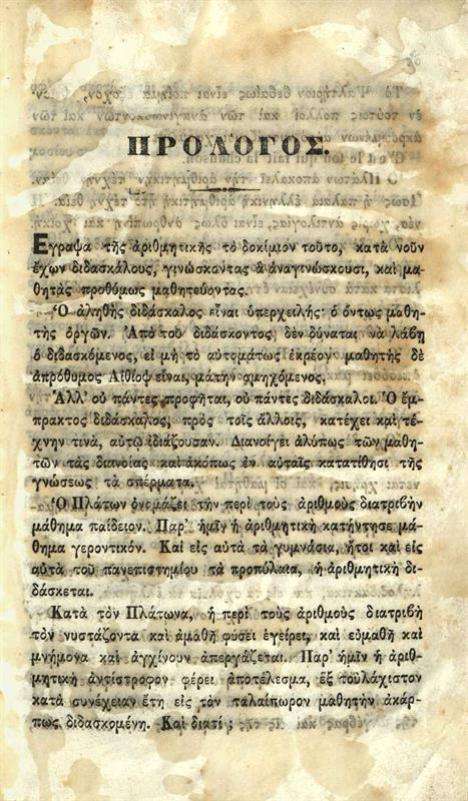 ΠΡΟΛΟΓΟΣ.
Εγραψα τῆς ἀριθμητικῆς τὸ δοκίμιον τοῦτο, κατὰ νοῦν
ἔχων διδασκάλους, γινώσκοντας ἃ ἀναγινώσκουσι, καὶ μα-
θητὰς προθύμως μαθητεύοντας.
Ὁ ἀληθὴς διδάσκαλος εἶναι ὑπερχειλής· ὁ ὄντως μαθη-
τὴς ὀργῶν. Ἀπὸ τοῦ διδάσκοντος δὲν δύναται νὰ λάβῃ
ὁ διδασκόμενος, εἰ μὴ τὸ αὐτομάτως ἐκρέον· μαθητὴς δὲ
ἀπρόθυμος Αἰθίοψ εἶναι, μάτην σμηχόμενος.
Ἀλλ' οὐ πάντες προφῆται, οὐ πάντες διδάσκαλοι. Ὁ ἔμ-
πρακτος διδάσκαλος, πρὸς τοῖς ἄλλοις, κατέχει καὶ τέ-
χνην τινὰ, αὐτῷ ἰδιάζουσαν. Διανοίγει ἀλύπως τῶν μαθη-
τῶν τὰς διανοίας καὶ ἀκόπως ἐν αὐταῖς κατατίθησι τῆς
γνώσεως τὰ σπέρματα.
Ὁ Πλάτων ὀνομάζει τὴν περὶ τοὺς ἀριθμοὺς διατριβὴν
μάθημα παίδειον. Παρ' ἡμῖν ἡ ἀριθμητικὴ κατήντησε μά-
θημα γεροντικόν. Καὶ εἰς αὐτὰ τὰ γυμνάσια, ἤτοι καὶ εἰς
αὐτὰ τοῦ πανεπιστημίου τὰ προπύλαια, ἡ ἀριθμητικὴ δι-
δάσκεται.
Κατὰ τὸν Πλάτωνα, ἡ περὶ τοὺς ἀριθμοὺς διατριβὴ
τὸν νυστάζοντα καὶ ἀμαθῆ φύσει ἐγείρει, καὶ εὐμαθῆ καὶ
μνήμονα καὶ ἀγχίνουν ἀπεργάζεται. Παρ' ἡμῖν ἡ ἀριθ-
μητικὴ ἀντίστροφον φέρει ἀποτέλεσμα, ἓξ τοὐλάχιστον
κατὰ συνέχειαν ἔτη εἰς τὸν ταλαίπωρον μαθητὴν ἀκάρ-
πως διδασκομένη. Καὶ διατί;